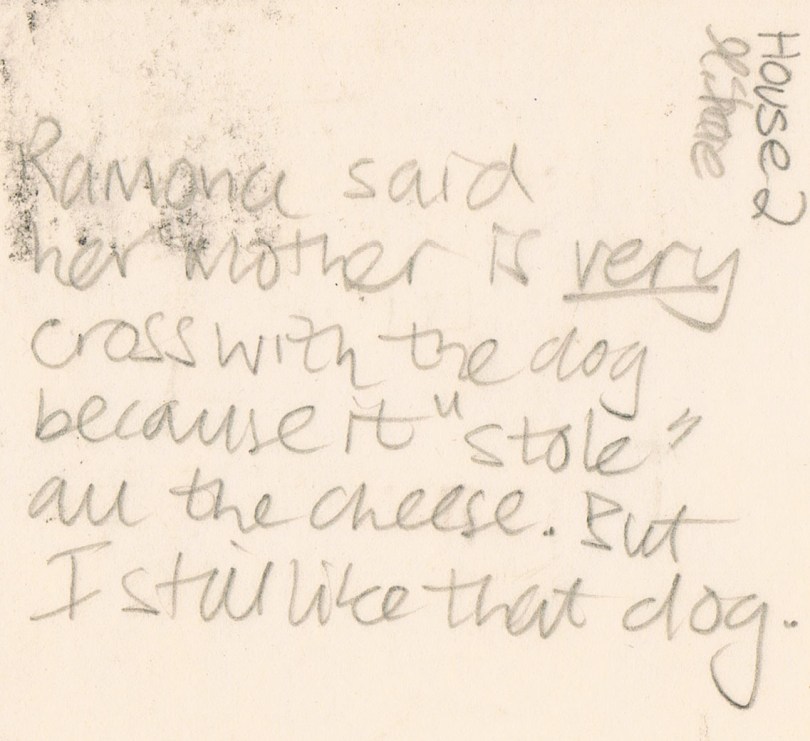 Ramona said
her mother is very
cross with the dog
because it "stole"
all the cheese. But
I still like that dog.
House 2